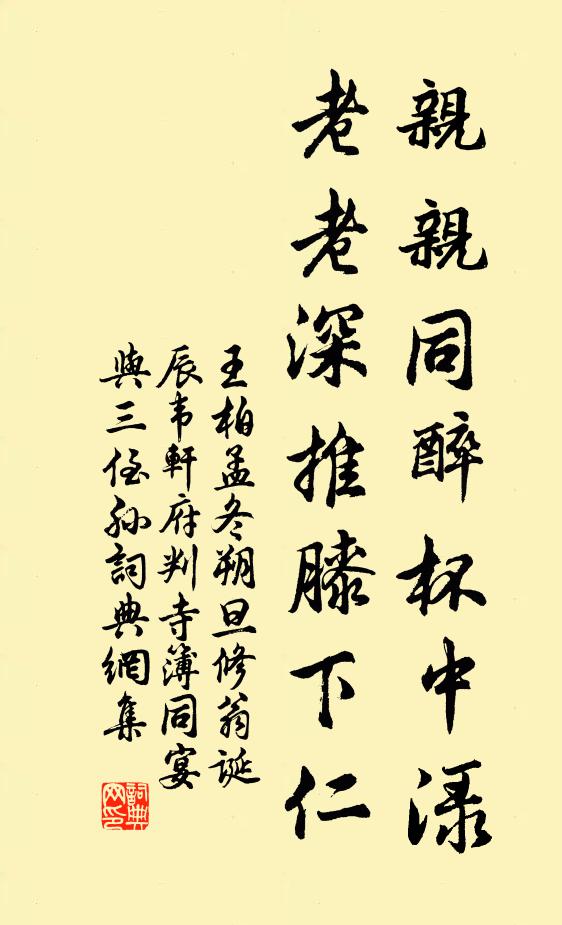 親親同醉杯中渌
老老深推膝下仁
王柏孟冬朔旦修翁誕
辰韦軒府判寺簿同宴
與三侄孙詞典網集
詞典网印